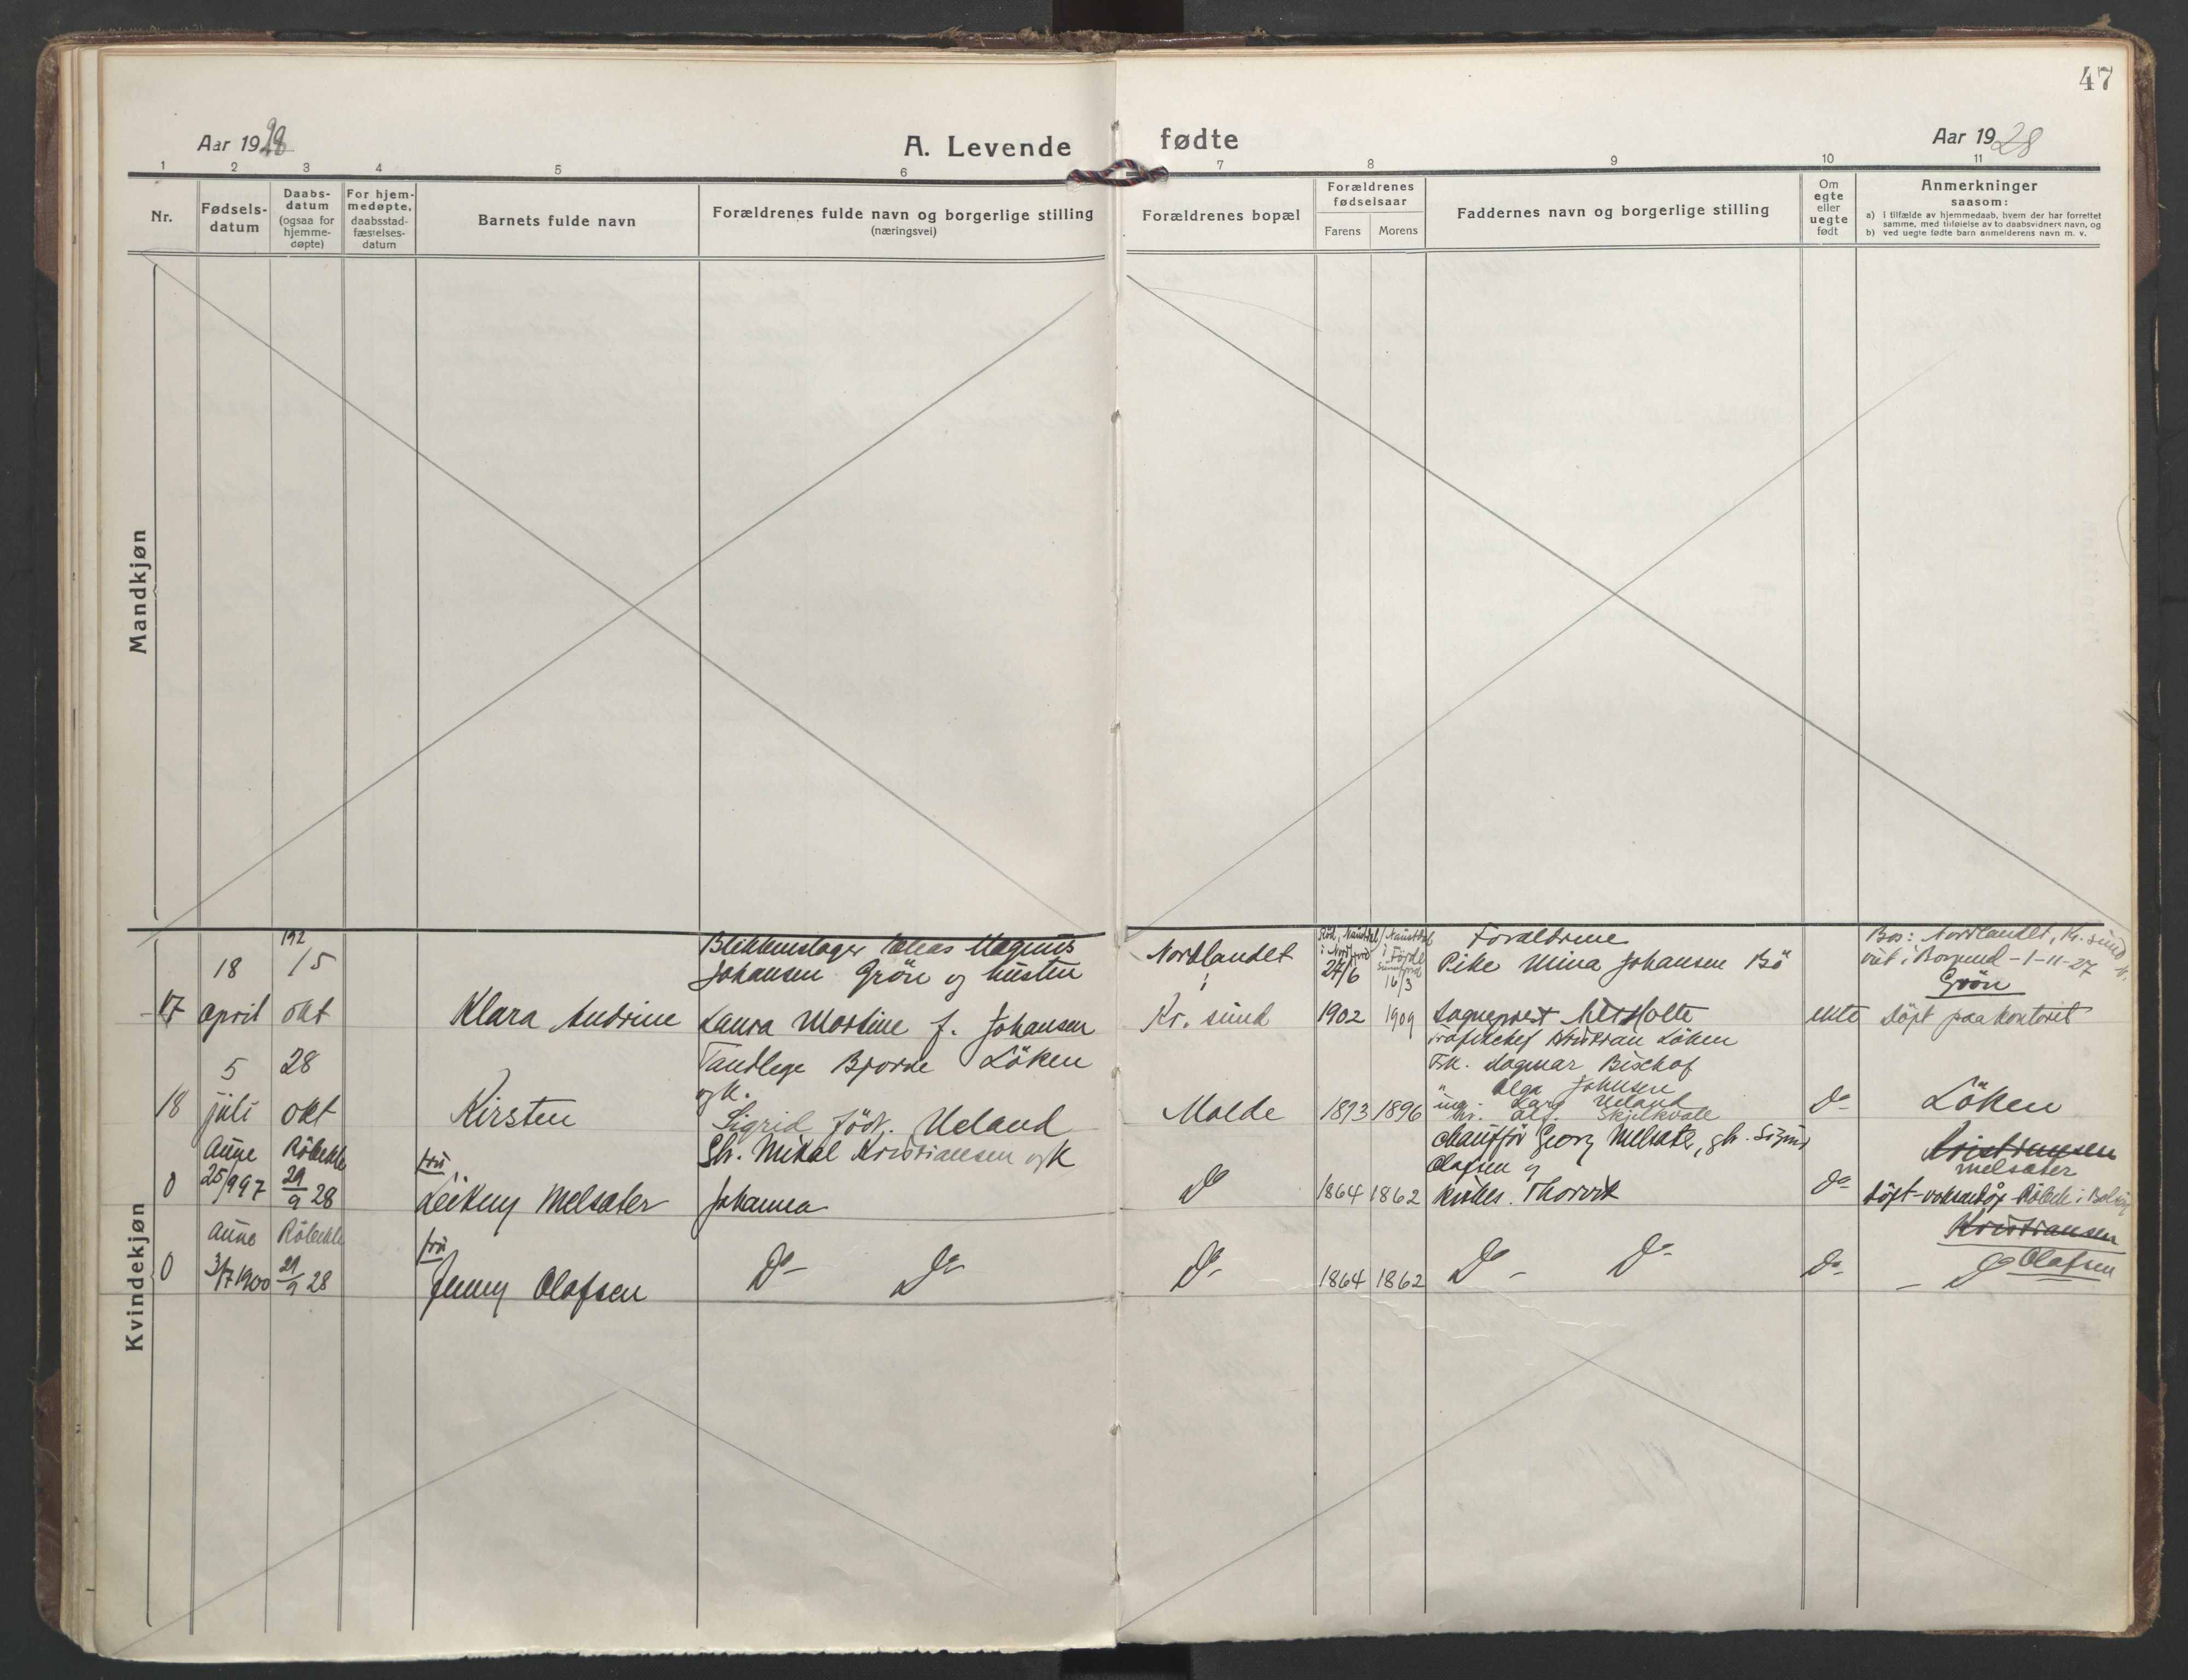 47
Aar 1928
A. Levende fødte
Aar 1928
1 2 3 4 5 6 7 8 9 10 11
Nr.
Fødsels-
datum
Daabs-
datum
(ogsaa for
hjemme-
døpte)
For hjem-
medøpte,
daabsstad-
fæstelses-
datum
Barnets fulde navn
Forældrenes fulde navn og borgerlige stilling
(næringsvei)
Forældrenes bopæl
Forældrenes
fødselsaar
Farens Morens
Faddernes navn og borgerlige stilling
Om
egte
eller
uegte
født
Anmerkninger
saasom:
a) i tilfælde av hjemmedaab, hvem der har forrettet
samme, med tilføielse av to daabsvidners navn, og
b) ved uegte fødte barn anmelderens navn m. v.
Mandkjøn
Kvindekjøn
17
18
april
192
15
okt
Klara Andrine
Blikkenslager Magnus
Johansen Grön og hustru
Laura Martine f. Johansen
Nordlandet
Kr. sund
27/6
1902
16/3
1909
Foraldrene
Pike Mina Johansen Bö
Sogneprest Holte
ekte
Bos: Nordlandet, Kr. sund
viet i Borgund - 1-11-27
Grön
Döpt paa kontoret
18
5
juli
28
okt
Kirsten
Tandlege Bjarne Löken
og k.
Sigrid född. Ueland
Molde
1893
1896
Kristian Löken
Frk. Dagmar Bischof
" Olga Johnsen
ing. Lars Ueland
Skjelkvale
Do-
Löken
0
Aure
25/9 97
Röbekk
29/9 28
fru
Leikny Melsæter
Mikal Kristiansen og k
Johanna
Do
1864
1862
Chaufför Georg Melsæter, Sigurd
Olafsen og
Thorvik
Do-
Kristiansen
Melsæter
Döpt-voksendåp Röbekk i Bolsöy
0
Aure
3/7 1900
Röbekk
29/9 28
fru
Jenny Olafsen
Do- Do-
Do-
1864
1862
Do- Do-
Do-
Kristiansen
- Do Olafsen